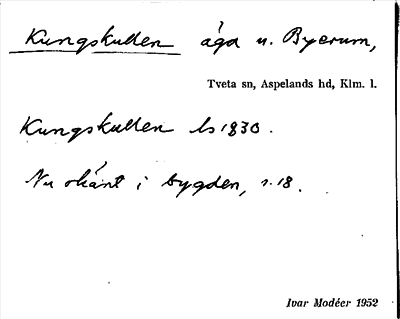 Kungskullen åga u. Byerum,
Tveta sn, Aspelands hd, Klm. l.
Kungskullen Ls 1830.
Nu okänt i bygden, s. 18.
Ivar Modéer 1952